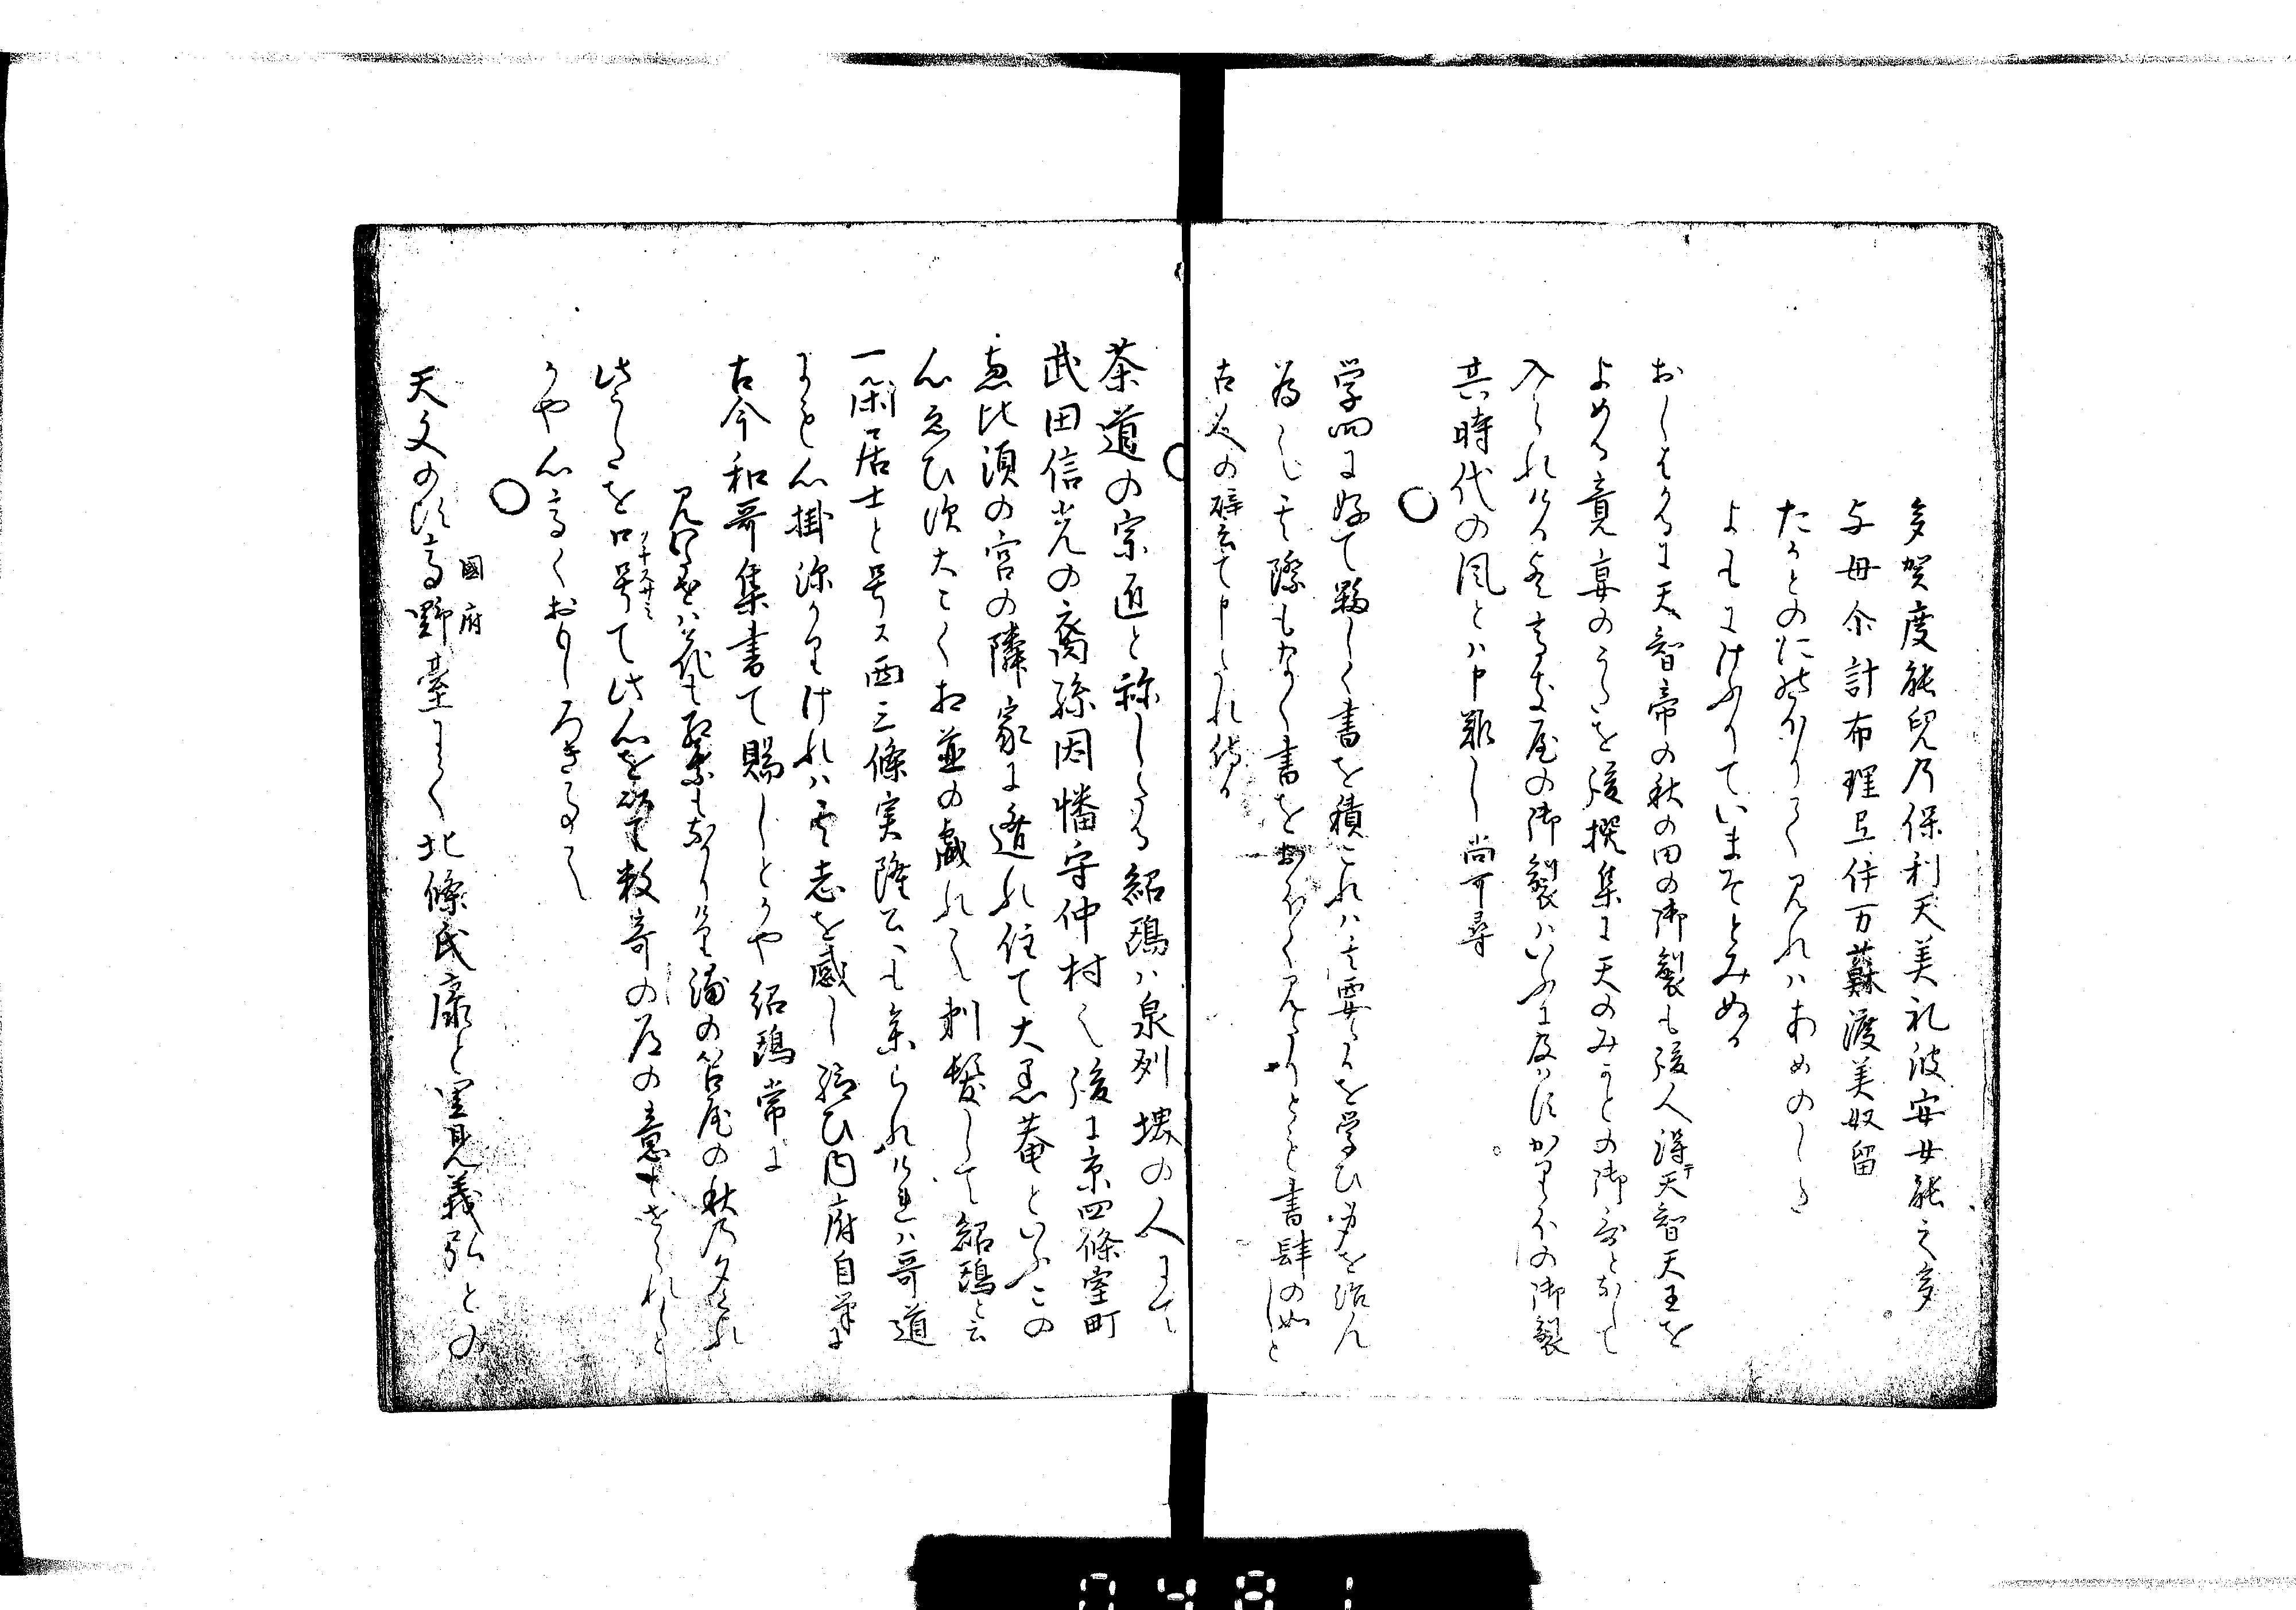 多賀度能兒乃保利天美礼波安女能之多
与母尓計布理弖伊万蘇渡美奴留
たかとのにのほりてみれはあめのした
よもにけふりていまそとみぬる
おしはかるに天智帝の秋の田の御製も後人得テ天智天王を
よめる竟宴のうたを後撰集に天のみかとの御哥となして
入られける高き屋の御製はいふに及はすかりほの御製
其時代の風とは申難し尚可尋
○
学問に好て夥しく書を積これは其要たるを学ひ身を治ん
為也其際もなく書をおほく見たりとも書肆のことしと
古人の辟言て申され侍る
○
茶道の宗匠と称したる紹鴎ハ泉州堺の人にて
武田信光の裔孫因幡守仲村也後に京四條室町
恵比須の宮の隣家に遁れ住て大黒菴といふこの
心ゑひす大こく相並の戯れ也剃髪して紹鴎と云
一閑居士と号ス西三條実隆公へも参られけれハ哥道
にも心掛深かりけれハ其志を感し給ひ内府自筆に
古今和哥集書て賜しとかや紹鴎常に
見わたせハ花も紅葉もなかりけり浦の笘屋の秋乃夕くれ
此うたを口号て此心を以て数奇の道の意とせられしと
かや心高くおもしろき事也
○
天文の頃高野臺にて北條氏康と里見義弘との
國府